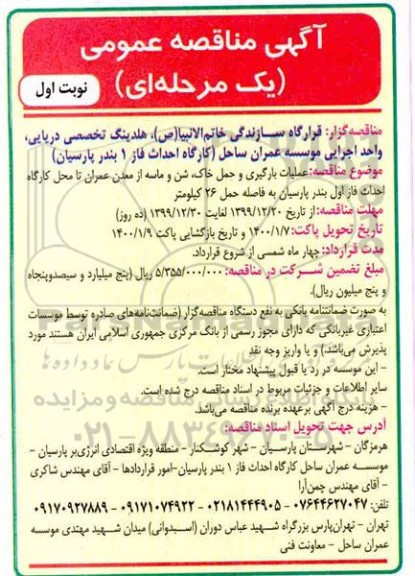 آگهی مناقصه عمومی
(یک مرحله‌ای)
نوبت اول
مناقصه‌گزار: قرارگاه سازندگی خاتم‌الانبیا(ص)، هلدینگ تخصصی دریایی،
واحد اجرایی موسسه عمران ساحل (کارگاه احداث فاز ۱ بندر پارسیان)
موضوع مناقصه: عملیات بارگیری و حمل خاک، شن و ماسه از معدن عمران تا محل کارگاه
احداث فاز اول بندر پارسیان به فاصله حمل ۲۶ کیلومتر
مهلت مناقصه: از تاریخ ۱۳۹۹/۱۲/۲۰ لغایت ۱۳۹۹/۱۲/۳۰ (ده روز)
تاریخ تحویل پاکت: ۱۴۰۰/۱/۷ و تاریخ بازگشایی پاکت ۱۴۰۰/۱/۹
مدت قرارداد: چهار ماه شمسی از شروع قرارداد.
مبلغ تضمین شرکت در مناقصه: ۵/۳۵۵/۰۰۰/۰۰۰ ریال (پنج میلیارد و سیصدوپنجاه
و پنج میلیون ریال).
به صورت ضمانتنامه بانکی به نفع دستگاه مناقصه‌گزار (ضمانت‌نامه‌های صادره توسط موسسات
اعتباری غیربانکی که دارای مجوز رسمی از بانک مرکزی جمهوری اسلامی ایران هستند مورد
پذیرش می‌باشند) و یا واریز وجه نقد
- این موسسه در رد یا قبول پیشنهاد مختار است.
سایر اطلاعات و جزئیات مربوط در اسناد مناقصه درج شده است.
- هزینه درج آگهی برعهده برنده مناقصه می‌باشد.
آدرس جهت تحویل اسناد مناقصه:
هرمزگان - شهرستان پارسیان - شهر کوشکنار - منطقه ویژه اقتصادی انرژی‌بر پارسیان -
موسسه عمران ساحل کارگاه احداث فاز ۱ بندر پارسیان-امور قراردادها - آقای مهندس شاکری
- آقای مهندس چمن‌آرا
تلفن: ۰۷۶۴۴۶۲۷۰۴۷ - ۰۲۱۸۱۴۴۴۹۰۵ - ۰۹۱۷۱۰۷۴۹۲۲ - ۰۹۱۷۰۹۲۷۸۸۹
تهران - تهران‌پارس بزرگراه شهید عباس دوران (اسبدوانی) میدان شهید مهتدی موسسه
عمران ساحل - معاونت فنی
پایگاه اطلاع رسانی مناقصه و مزایده